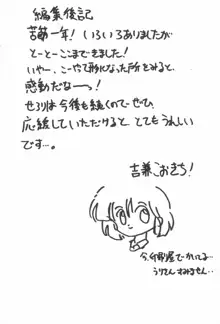 編集後記
苦節一年! いろいろありましたが
とーとーここまできました!
いやー、こーやて形になった所をみると、
感動だなーっ!
せろりは今後も続くのでぜひ
応援していただけると とてもうれしい
です…。
吉兼こおきち!
今、印刷屋でかいてる…
うりてんすみません…